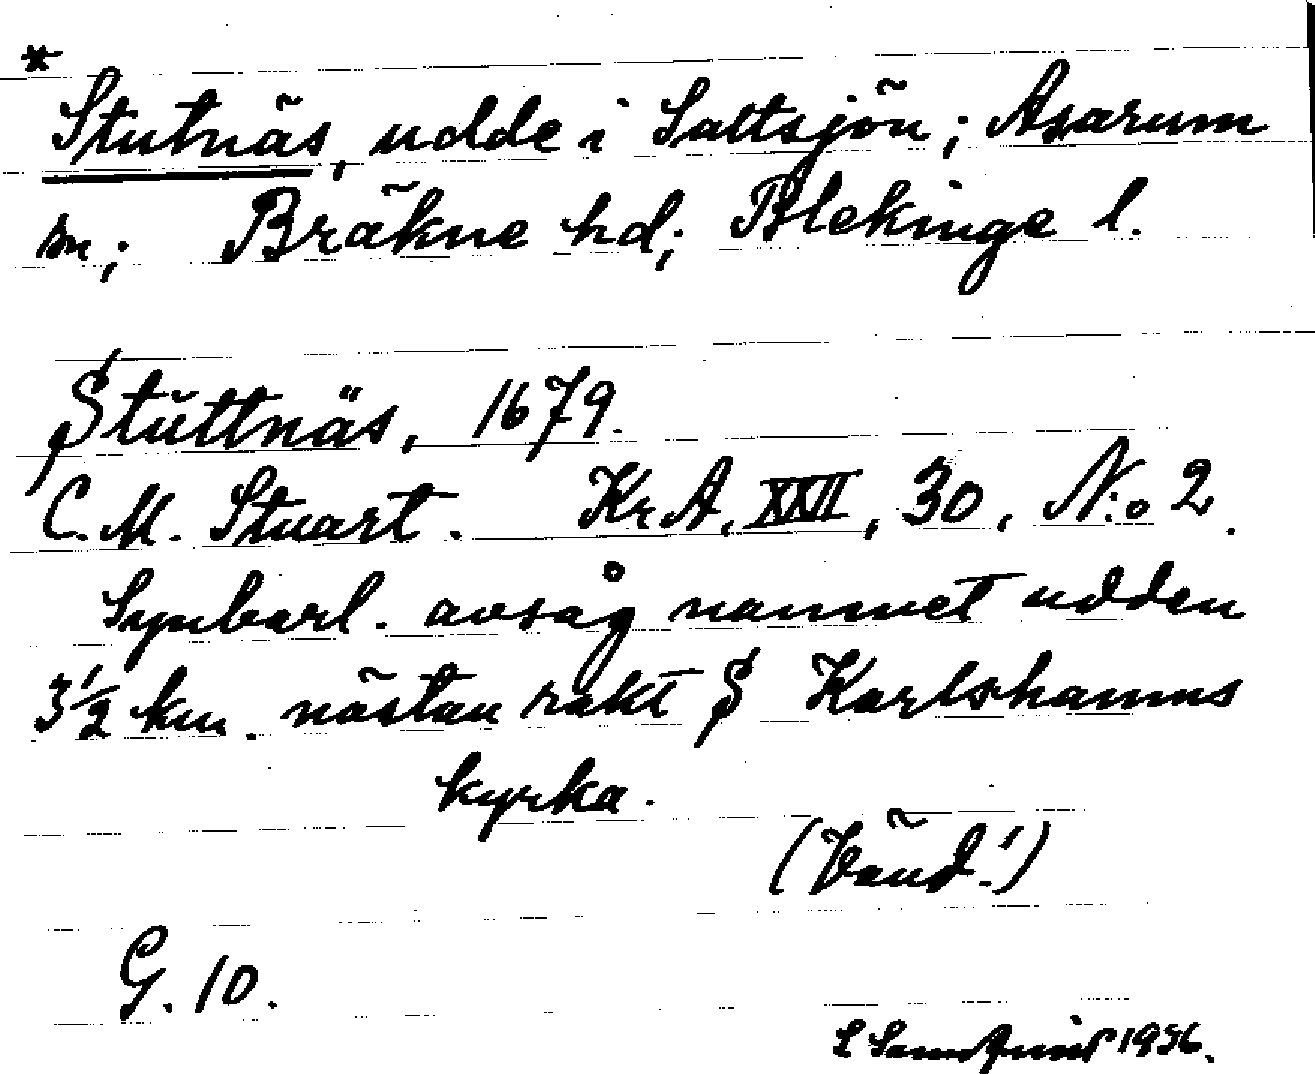 *
Stutnäs, udde i Saltsjön; Asarum
sn; Bräkne hd; Blekinge l.
Stŭttnäs, 1679.
C. M. Stuart. Kr. A, XXII, 30, N:o 2.
Synbarl. avsåg namnet udden
3 1/2 km. nästan rakt S Karlshamns
kyrka.
(Vänd!)
G. 10.
1936.